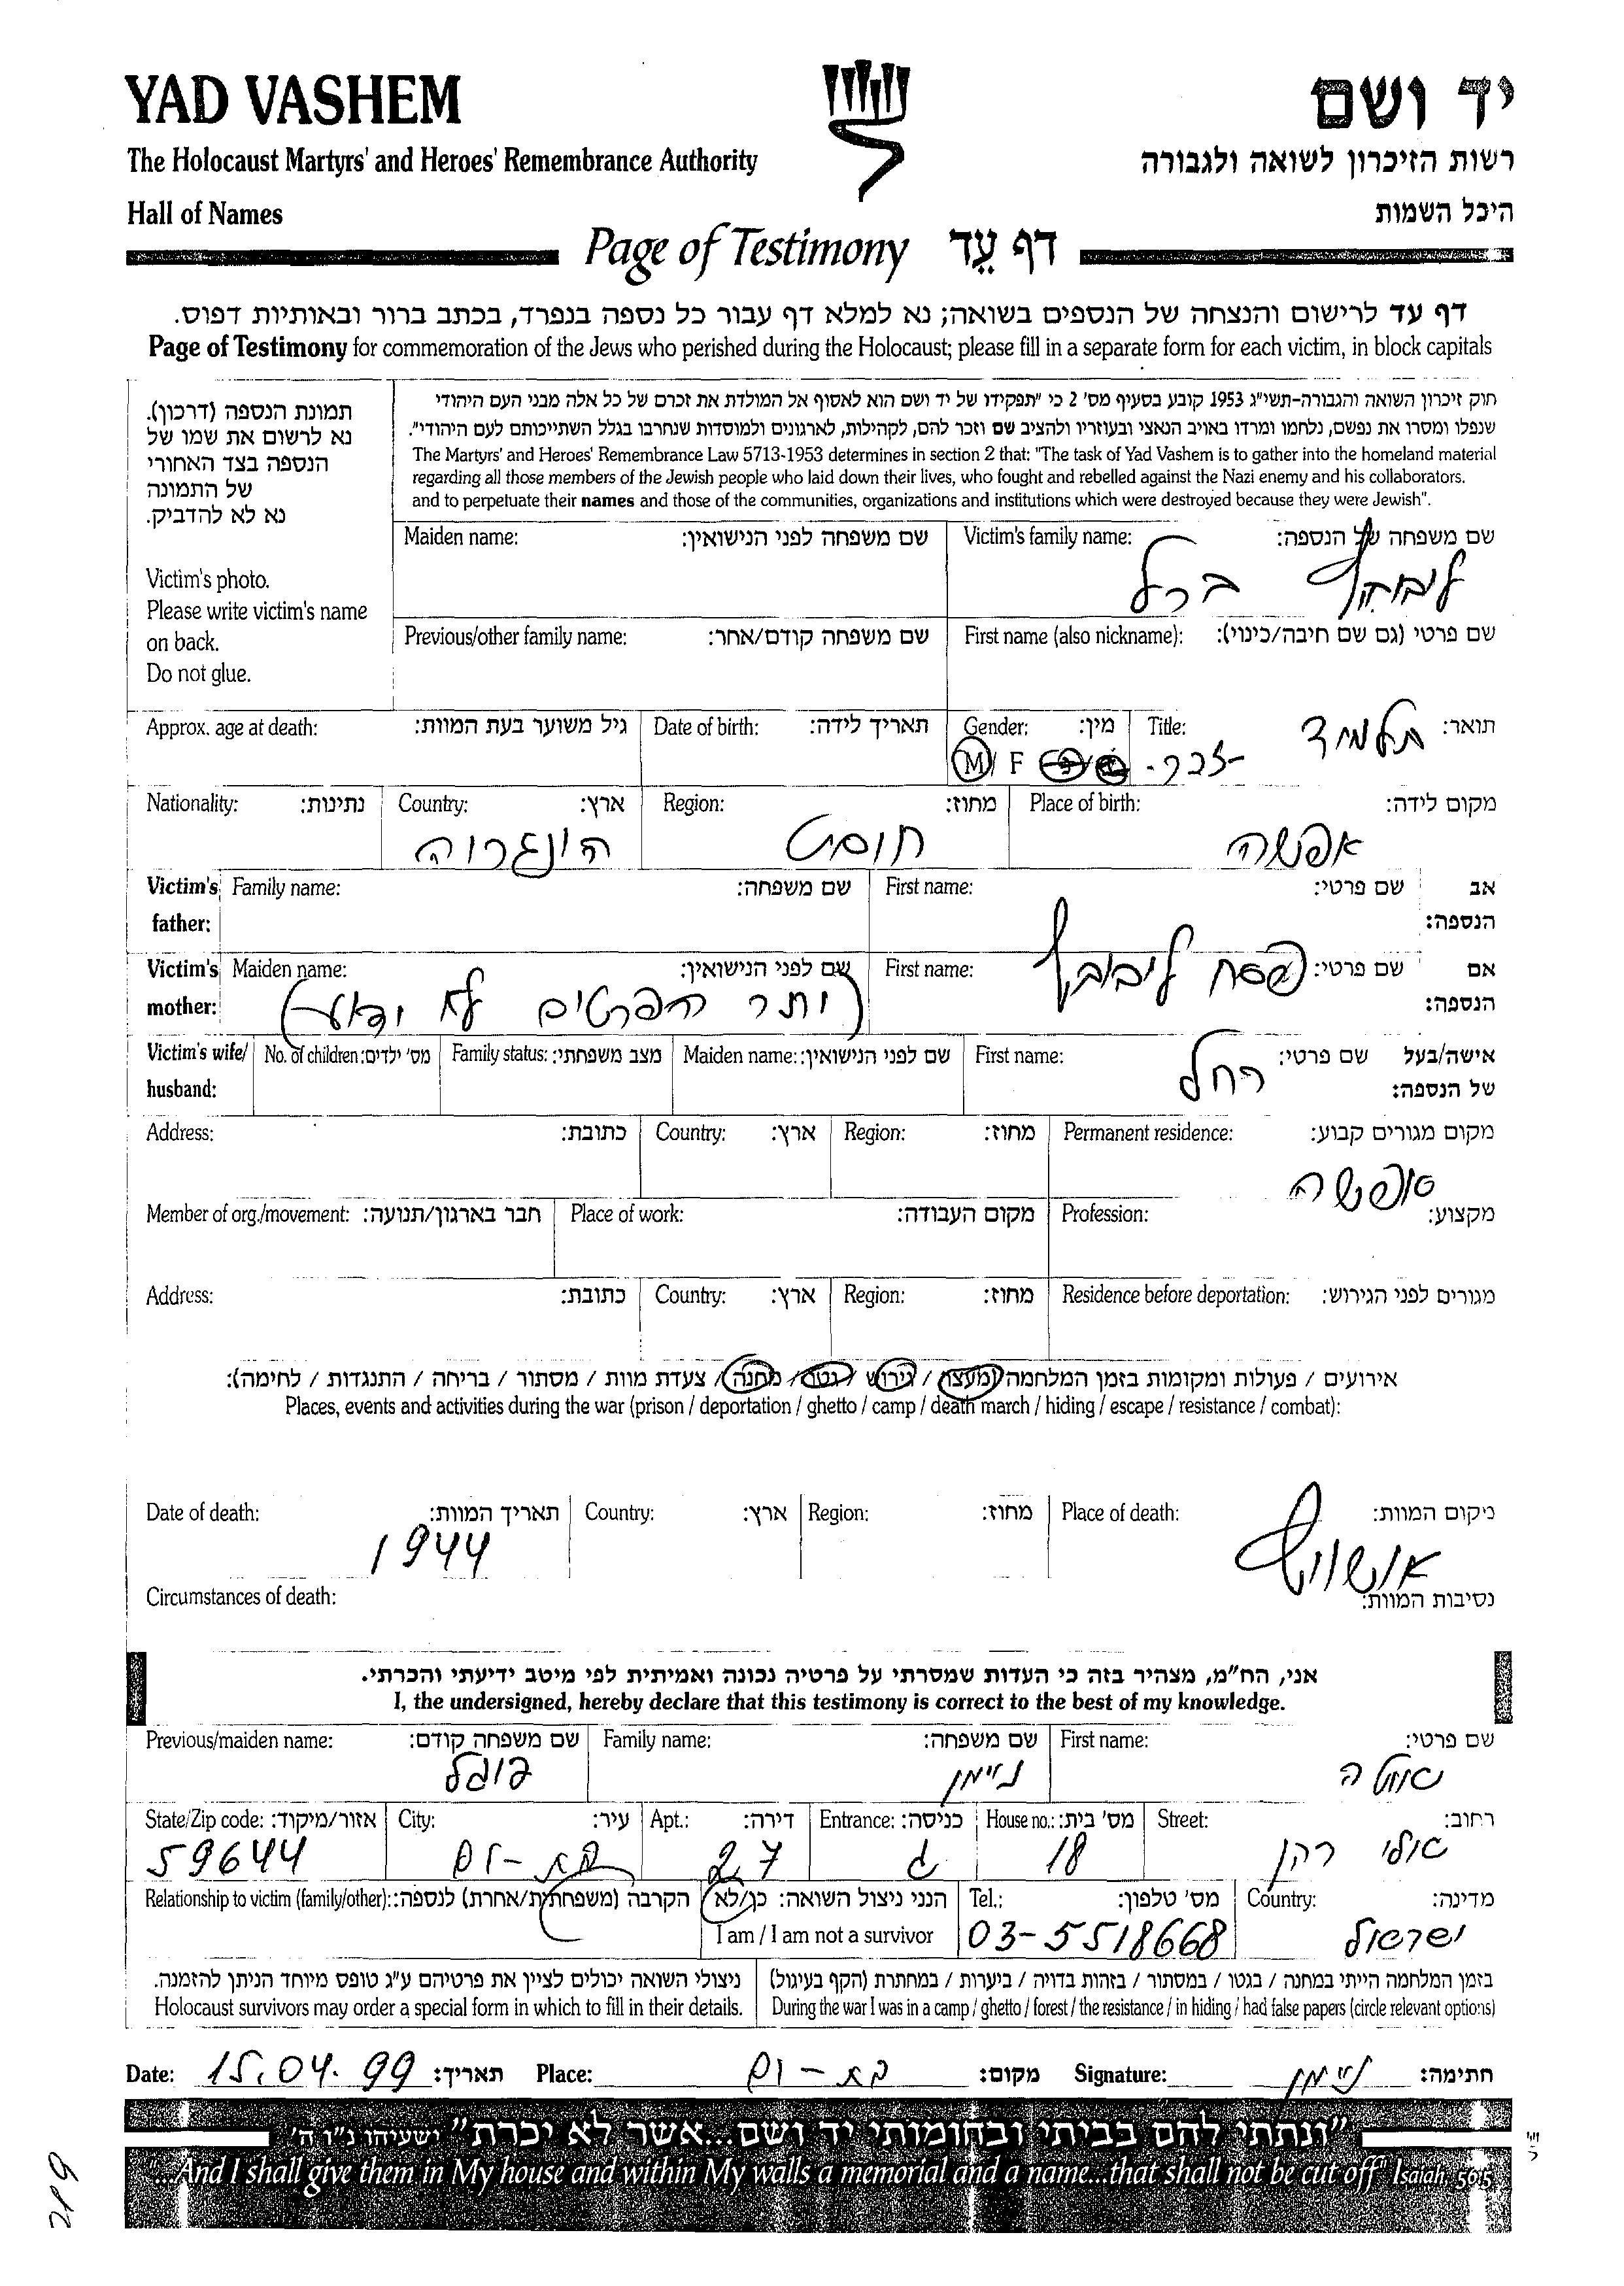 YAD VASHEM
יד ושם
The Holocaust Martyrs' and Heroes' Remembrance Authority
רשות הזיכרון לשואה ולגבורה
Hall of Names
היכל השמות
Page of Testimony דף עֵד
דף עד לרישום והנצחה של הנספים בשואה; נא למלא דף עבור כל נספה בנפרד, בכתב ברור ובאותיות דפוס.
Page of Testimony for commemoration of the Jews who perished during the Holocaust; please fill in a separate form for each victim, in block capitals
תמונת הנספה (דרכון).
נא לרשום את שמו של
הנספה בצד האחורי
של התמונה
נא לא להדביק.
Victim's photo.
Please write victim's name
on back.
Do not glue.
חוק זיכרון השואה והגבורה-תשי"ג 1953 קובע בסעיף מס' 2 כי "תפקידו של יד ושם הוא לאסוף אל המולדת את זכרם של כל אלה מבני העם היהודי
שנפלו ומסרו את נפשם, נלחמו ומרדו באויב הנאצי ובעוזריו ולהציב שם וזכר להם, לקהילות, לארגונים ולמוסדות שנחרבו בגלל השתייכותם לעם היהודי".
The Martyrs' and Heroes' Remembrance Law 5713-1953 determines in section 2 that: "The task of Yad Vashem is to gather into the homeland material
regarding all those members of the Jewish people who laid down their lives, who fought and rebelled against the Nazi enemy and his collaborators.
and to perpetuate their names and those of the communities, organizations and institutions which were destroyed because they were Jewish".
Maiden name: שם משפחה לפני הנישואין: Victim's family name: שם משפחה של הנספה:
ברל
Previous/other family name: שם משפחה קודם/אחר: First name (also nickname): שם פרטי (גם שם חיבה/כינוי):
Approx. age at death: גיל משוער בעת המוות: Date of birth: תאריך לידה: Gender: מין: Title: תואר:
M / F תלמיד
Nationality: נתינות: Country: ארץ: Region: מחוז: Place of birth: מקום לידה:
הונגריה חוסט אפשה
Victim's father: Family name: שם משפחה: First name: שם פרטי: אב הנספה:
Victim's mother: Maiden name: שם לפני הנישואין: First name: שם פרטי: אם הנספה:
(יתר הפרטים לא ידוע) פסח ליבוביץ
Victim's wife/ husband: No. of children: מס' ילדים: Family status: מצב משפחתי: Maiden name: שם לפני הנישואין: First name: שם פרטי: אישה/בעל של הנספה:
רחל
Address: כתובת: Country: ארץ: Region: מחוז: Permanent residence: מקום מגורים קבוע:
אפשה
Member of org./movement: חבר בארגון/תנועה: Place of work: מקום העבודה: Profession: מקצוע:
Address: כתובת: Country: ארץ: Region: מחוז: Residence before deportation: מגורים לפני הגירוש:
אירועים / פעולות ומקומות בזמן המלחמה (מעצר / גירוש / גטו / מחנה / צעדת מוות / מסתור / בריחה / התנגדות / לחימה):
Places, events and activities during the war (prison / deportation / ghetto / camp / death march / hiding / escape / resistance / combat):
Date of death: תאריך המוות: Country: ארץ: Region: מחוז: Place of death: מיקום המוות:
1944 אושוויץ
Circumstances of death: נסיבות המוות:
אני, הח"מ, מצהיר בזה כי העדות שמסרתי על פרטיה נכונה ואמיתית לפי מיטב ידיעתי והכרתי.
I, the undersigned, hereby declare that this testimony is correct to the best of my knowledge.
Previous/maiden name: שם משפחה קודם: Family name: שם משפחה: First name: שם פרטי:
פוגל ניימן
State/Zip code: אזור/מיקוד: City: עיר: Apt.: דירה: Entrance: כניסה: House no.: מס' בית: Street: רחוב:
59644 בת-ים 27 ג 18
Relationship to victim (family/other): הקרבה (משפחתית/אחרת) לנספה: הנני ניצול השואה: כן/לא Tel.: מס' טלפון: Country: מדינה:
I am / I am not a survivor 03-5518668 ישראל
ניצולי השואה יכולים לציין את פרטיהם ע"ג טופס מיוחד הניתן להזמנה. בזמן המלחמה הייתי במחנה / בגטו / במסתור / בזהות בדויה / ביערות / במחתרת (הקף בעיגול)
Holocaust survivors may order a special form in which to fill in their details. During the war I was in a camp / ghetto / forest / the resistance / in hiding / had false papers (circle relevant options)
Date: 15.04.99 תאריך: Place: בת-ים מקום: Signature: ניימן חתימה:
"ונתתי להם בביתי ובחומותי יד ושם...אשר לא יכרת" ישעיהו נ"ו ה'
"...And I shall give them in My house and within My walls a memorial and a name...that shall not be cut off" Isaiah, 56:5